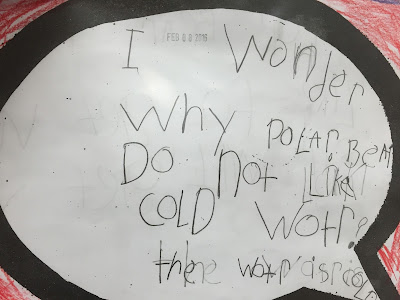 I Wonder
FEB 08 2018
Why POLAR BEAr
Do not LIKE
COLD Wotr?
there wotr is COLD